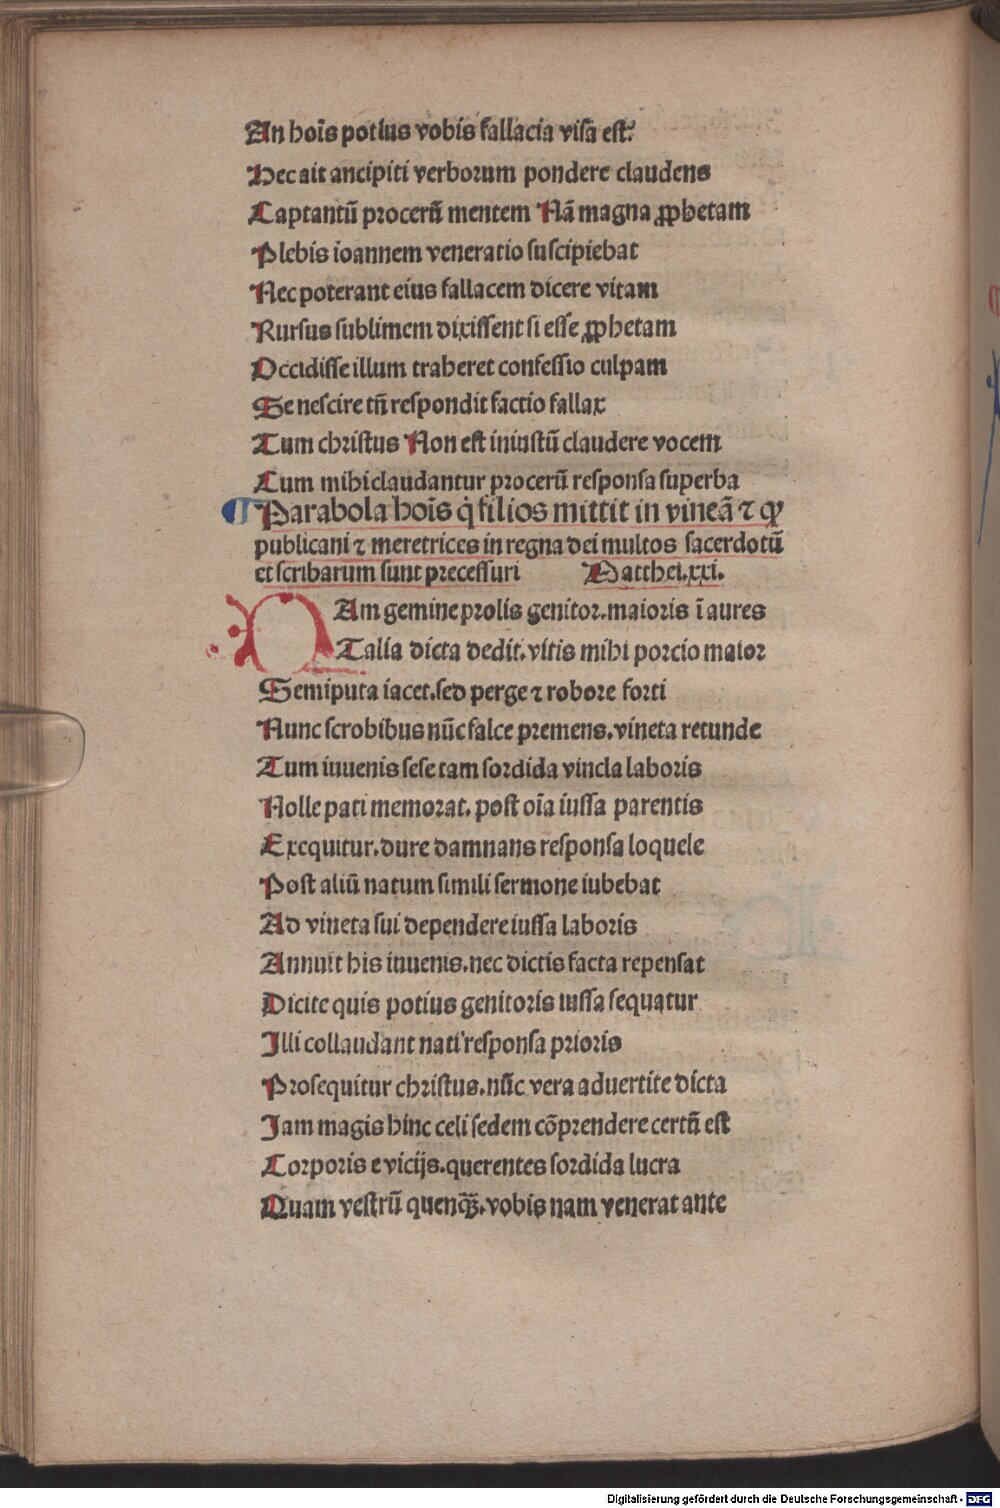 An hoı̄s potius vobis fallacia visa est?
Hec ait ancipiti verborum pondere claudens
Captantū procerū mentem Nā magna ꝓphetam
Plebis ioannem veneratio suscipiebat
Nec poterant eius fallacem dicere vitam
Rursus sublimem dixissent si esse ꝓphetam
Occidisse illum traheret confessio culpam
Se nescire tn̄ respondit factio fallax
Tum christus Non est iniustū claudere vocem
Cum mihi claudantur procerū responsa superba
¶ Parabola hoı̄s q̇ filios mittit in vineā ⁊ ꝙ
publicani ⁊ meretrices in regna dei multos sacerdotū
et scribarum sunt precessuri Matthei.xxi.
NAm gemine prolis genitor.maioris ī aures
Talia dicta dedit.vitis mihi porcio maior
Semiputa iacet.sed perge ⁊ robore forti
Nunc scrobibus nūc falce premens.vineta retunde
Tum iuuenis sese tam sordida vincla laboris
Nolle pati memorat.post oı̄a iussa parentis
Exequitur.dure damnans responsa loquele
Post aliū natum simili sermone iubebat
Ad vineta sui dependere iussa laboris
Annuit his iuuenis.nec dictis facta repensat
Dicite quis potius genitoris iussa sequatur
Illi collaudant nati responsa prioris
Prosequitur christus.nūc vera aduertite dicta
Jam magis hinc celi sedem cōprendere certū est
Corporis e vicijs.querentes sordida lucra
Quam vestrū quenqꝫ.vobis nam venerat ante
Digitalisierung gefördert durch die Deutsche Forschungsgemeinschaft - DFG